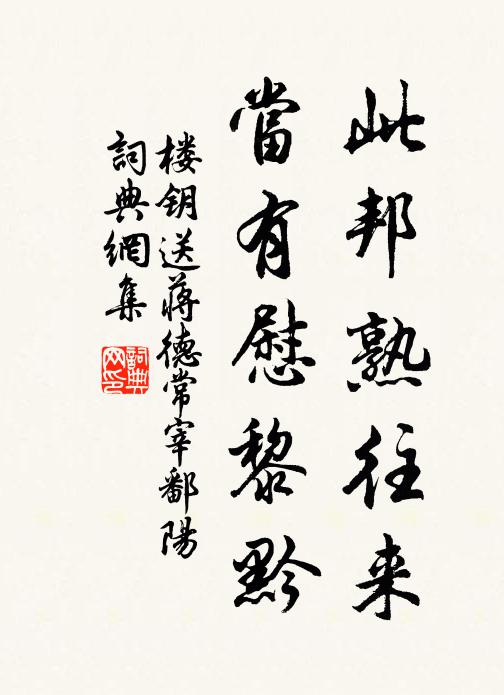 此邦熟往来
當有慰黎黔
楼钥送蒋德常宰鄱陽
詞典網集
詞典网印